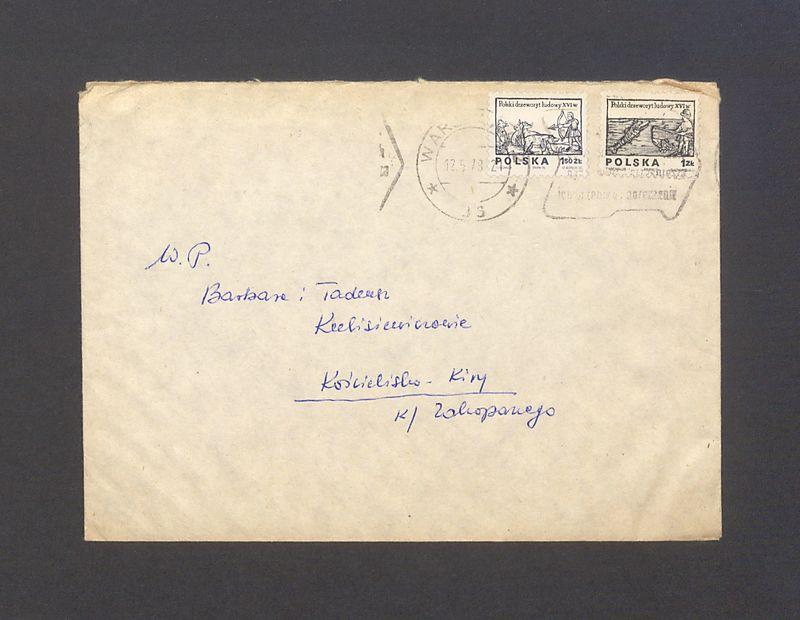 Polski drzeworyt ludowy XVI w
POLSKA 1.50 ZŁ
Polski drzeworyt ludowy XVI w
POLSKA 1 ZŁ
WAR
12.5.78 21
W. P.
Barbara i Tadeusz
Kulisiewiczowie
Kościelisko - Kiry
k/ Zakopanego